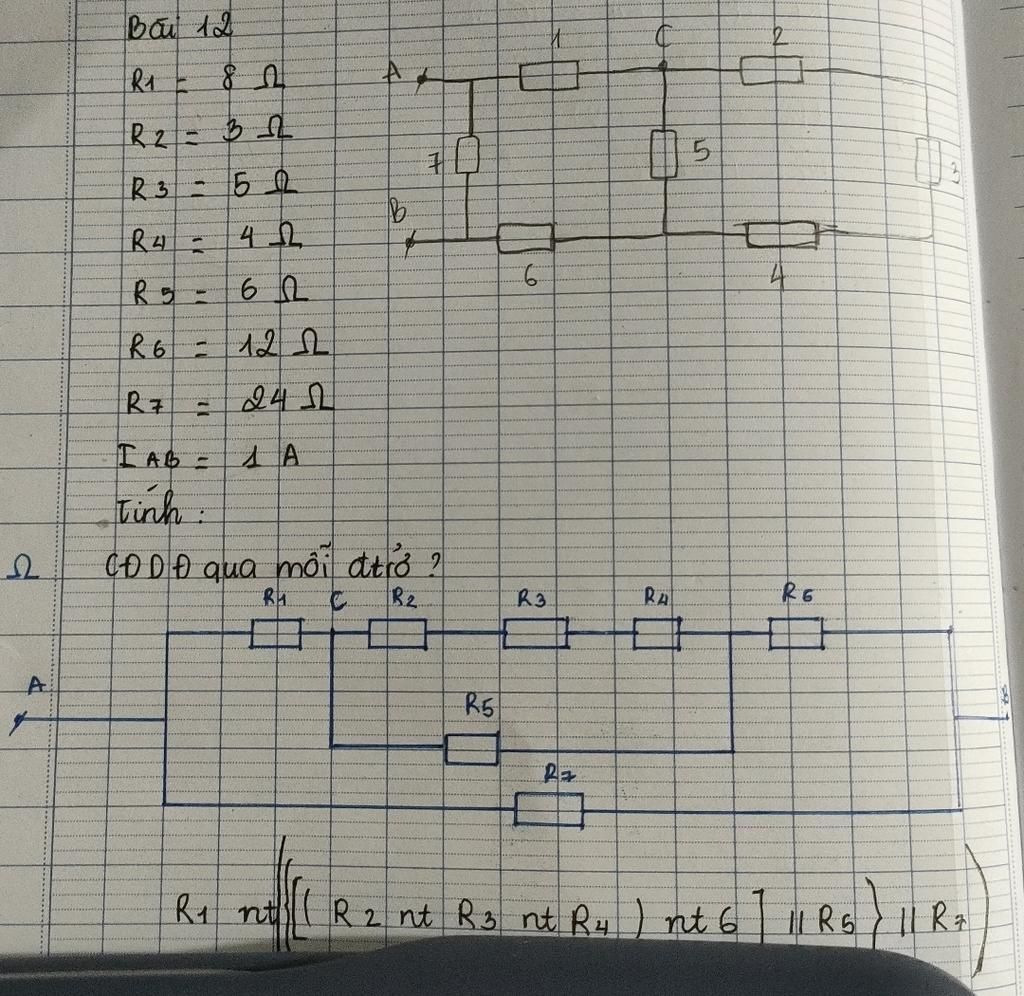 Bài 12
R1 = 8 Ω
R2 = 3 Ω
R3 = 5 Ω
R4 = 4 Ω
R5 = 6 Ω
R6 = 12 Ω
R7 = 24 Ω
IAB = 1 A
Tính :
CĐDĐ qua mỗi đtrở ?
A 1 C 2
7 5 3
B 6 4
Ω
R1 C R2 R3 R4 R6
A B
R5
R7
R1 nt ({[( R2 nt R3 nt R4 ) nt 6 ] || R5 } || R7 )